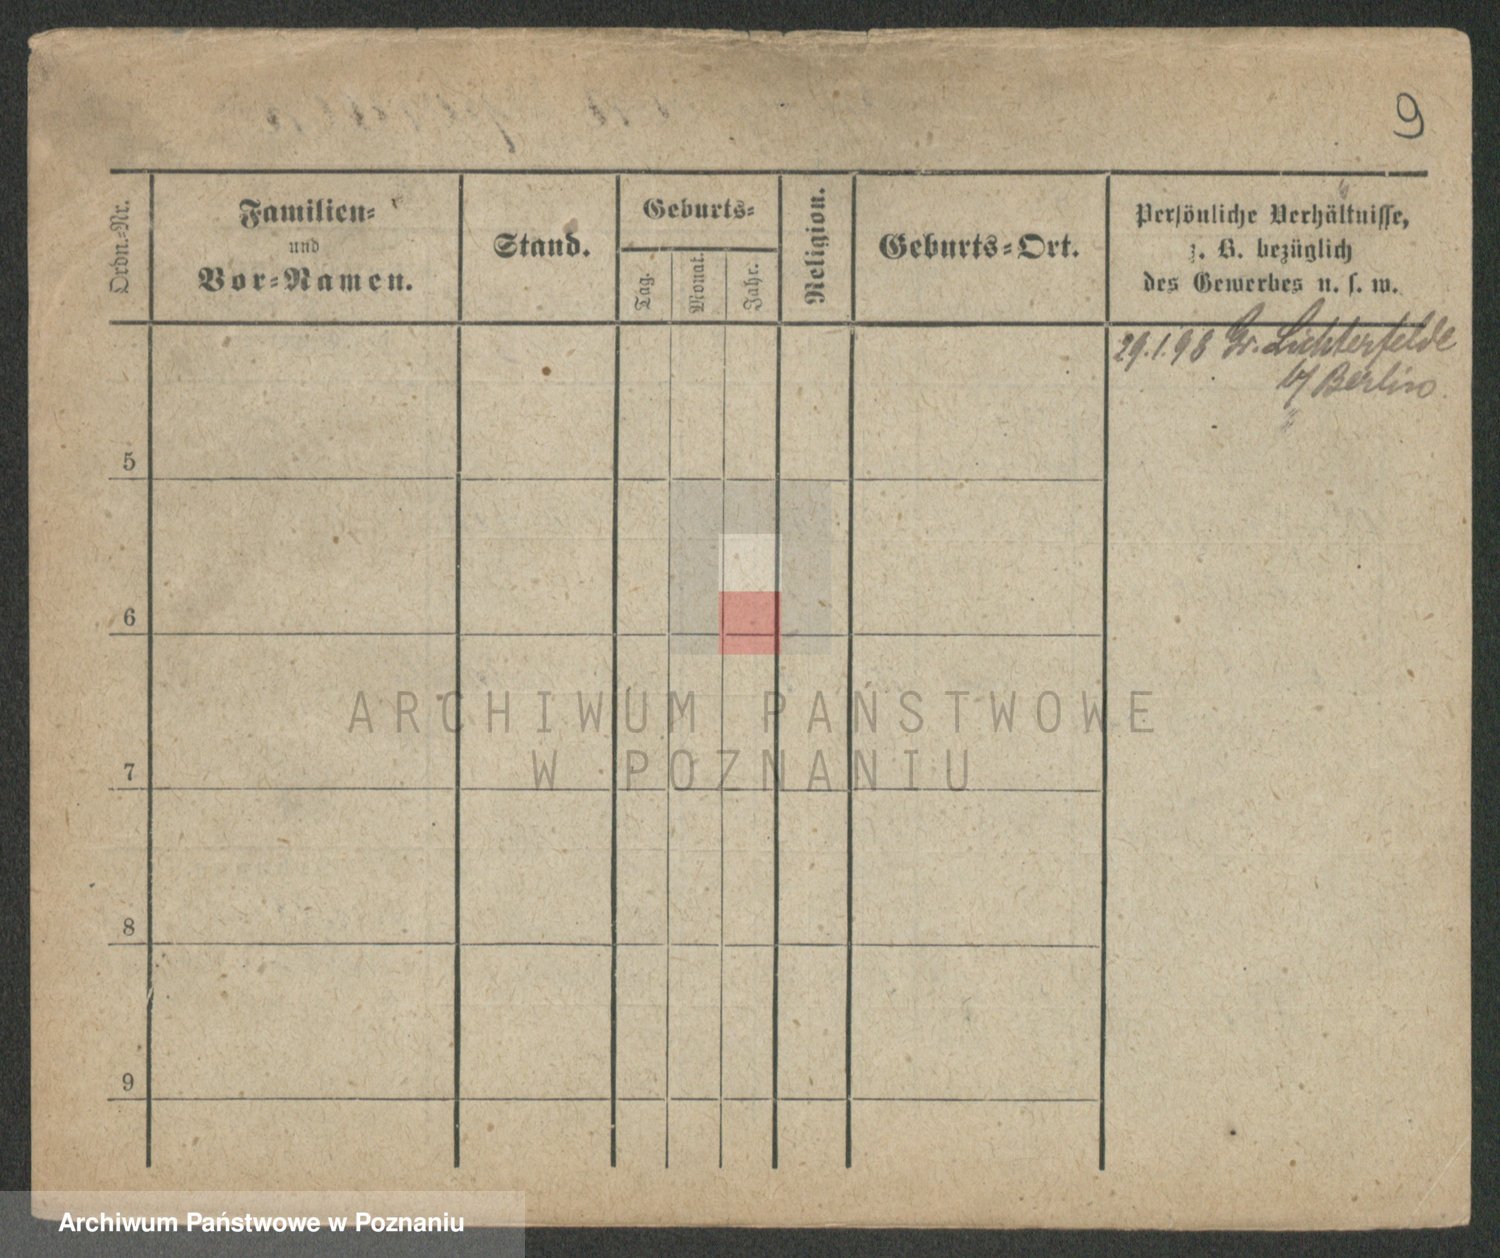 9
Ordn.-Nr.
Familien-
und
Vor-Namen.
Stand.
Geburts-
Tag.
Monat.
Jahr.
Religion.
Geburts-Ort.
Persönliche Verhältnisse,
z. B. bezüglich
des Gewerbes u. s. w.
29.1.98 Gr. Lichterfelde
b/ Berlin.
5
6
7
8
9
ARCHIWUM PAŃSTWOWE
W POZNANIU
Archiwum Państwowe w Poznaniu